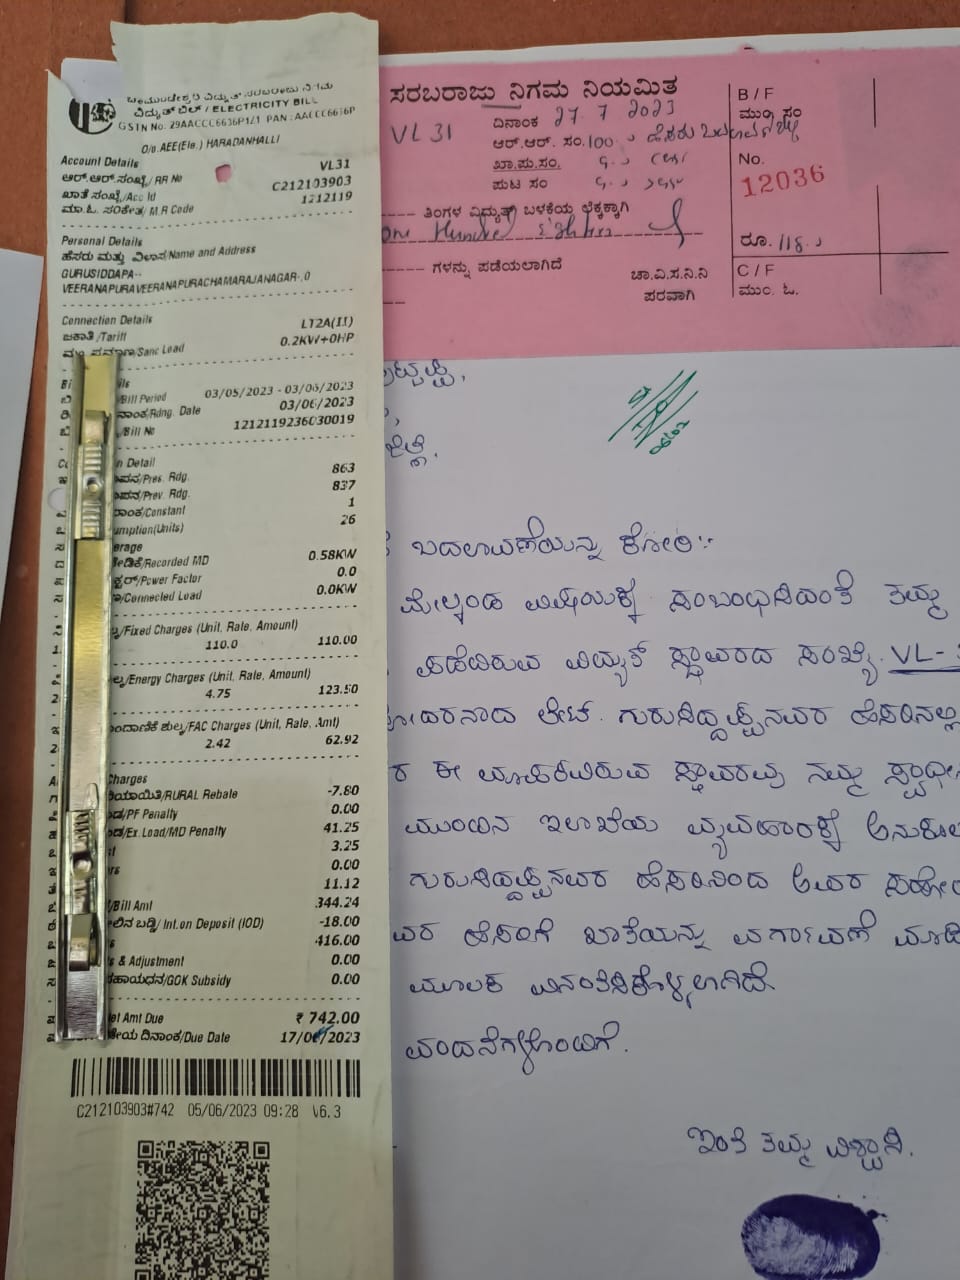 ಚಾಮುಂಡೇಶ್ವರಿ ವಿದ್ಯುತ್ ಸರಬರಾಜು ನಿಗಮ
ವಿದ್ಯುತ್ ಬಿಲ್ / ELECTRICITY BILL
GSTN No. 29AACCC6636P1Z1 PAN: AACCC6636P
O/o. AEE(Ele.) HARADANHALLI
Account Details
ಆರ್.ಆರ್.ಸಂಖ್ಯೆ/ RR No VL31
ಖಾತೆ ಸಂಖ್ಯೆ/Acc Id C212103903
ಮಾ.ಓ. ಸಂಕೇತ/ M.R Code 1212119
Personal Details
ಹೆಸರು ಮತ್ತು ವಿಳಾಸ/Name and Address
GURUSIDDAPA--
VEERANAPURAVEERANAPURACHAMARAJANAGAR-,0
Connection Details
ಜಕಾತಿ /Tariff LT2A(II)
ಮಂ. ಪ್ರಮಾಣ/Sanc Load 0.2KW+0HP
/Bill Period 03/05/2023 - 03/06/2023
ನಾಂಕ/Rdng. Date 03/06/2023
/Bill No 1212119236030019
n Detail
/Pres. Rdg. 863
/Prev. Rdg. 837
/Constant 1
umption(Units) 26
erage
/Recorded MD 0.58KW
/Power Factor 0.0
/Connected Load 0.0KW
/Fixed Charges (Unit, Rate, Amount)
110.0 110.00
/Energy Charges (Unit, Rate, Amount)
4.75 123.50
ಂದಾಣಿಕೆ ಶುಲ್ಕ/FAC Charges (Unit, Rate, Amt)
2.42 62.92
Charges
ರಿಯಾಯಿತಿ/RURAL Rebate -7.80
/PF Penalty 0.00
/Ex.Load/MD Penalty 41.25
3.25
0.00
11.12
/Bill Amt 344.24
ಲಿನ ಬಡ್ಡಿ/ Int.on Deposit (IOD) -18.00
416.00
s & Adjustment 0.00
ಸಹಾಯಧನ/GOK Subsidy 0.00
et Amt Due ₹ 742.00
ಕೆಯ ದಿನಾಂಕ/Due Date 17/06/2023
C212103903#742 05/06/2023 09:28 V6.3
ಸರಬರಾಜು ನಿಗಮ ನಿಯಮಿತ
VL 31
ದಿನಾಂಕ 27 7 2023
ಆರ್.ಆರ್. ಸಂ. 100
ಖಾ.ಪು.ಸಂ.
ಪುಟ ಸಂ
ತಿಂಗಳ ವಿದ್ಯುತ್ ಬಳಕೆಯ ಲೆಕ್ಕಕ್ಕಾಗಿ
one Hundred Eighteen
ಗಳನ್ನು ಪಡೆಯಲಾಗಿದೆ
ಚಾ.ವಿ.ಸ.ನಿ.ನಿ
ಪರವಾಗಿ
B / F
ಮುಂ. ಸಂ
No.
12036
ರೂ. 118
C / F
ಮುಂ. ಓ.
ಬದಲಾವಣೆಯನ್ನು ಕೋರಿ:-
ಮೇಲ್ಕಂಡ ವಿಷಯಕ್ಕೆ ಸಂಬಂಧಿಸಿದಂತೆ ತಮ್ಮ
ಪಡೆದಿರುವ ವಿದ್ಯುತ್ ಸ್ಥಾವರದ ಸಂಖ್ಯೆ. VL-
ೋದರನಾದ ಲೇಟ್. ಗುರುಸಿದ್ದಪ್ಪನವರ ಹೆಸರಿನಲ್ಲಿ
ಈ ಸ್ಥಾವರವು ನಮ್ಮ
ಮುಂದಿನ ಇಲಾಖೆಯ ವ್ಯವಹಾರಕ್ಕೆ ಅನುಕೂಲ
ಗುರುಸಿದ್ದಪ್ಪನವರ ಹೆಸರಿನಿಂದ ಅವರ ಸಹೋ
ವರ ಹೆಸರಿಗೆ ಖಾತೆಯನ್ನು ವರ್ಗಾವಣೆ ಮಾಡಿ
ಮೂಲಕ ವಿನಂತಿಸಿಕೊಳ್ಳಲಾಗಿದೆ.
ವಂದನೆಗಳೊಂದಿಗೆ.
ಇಂತಿ ತಮ್ಮ ವಿಶ್ವಾಸಿ.